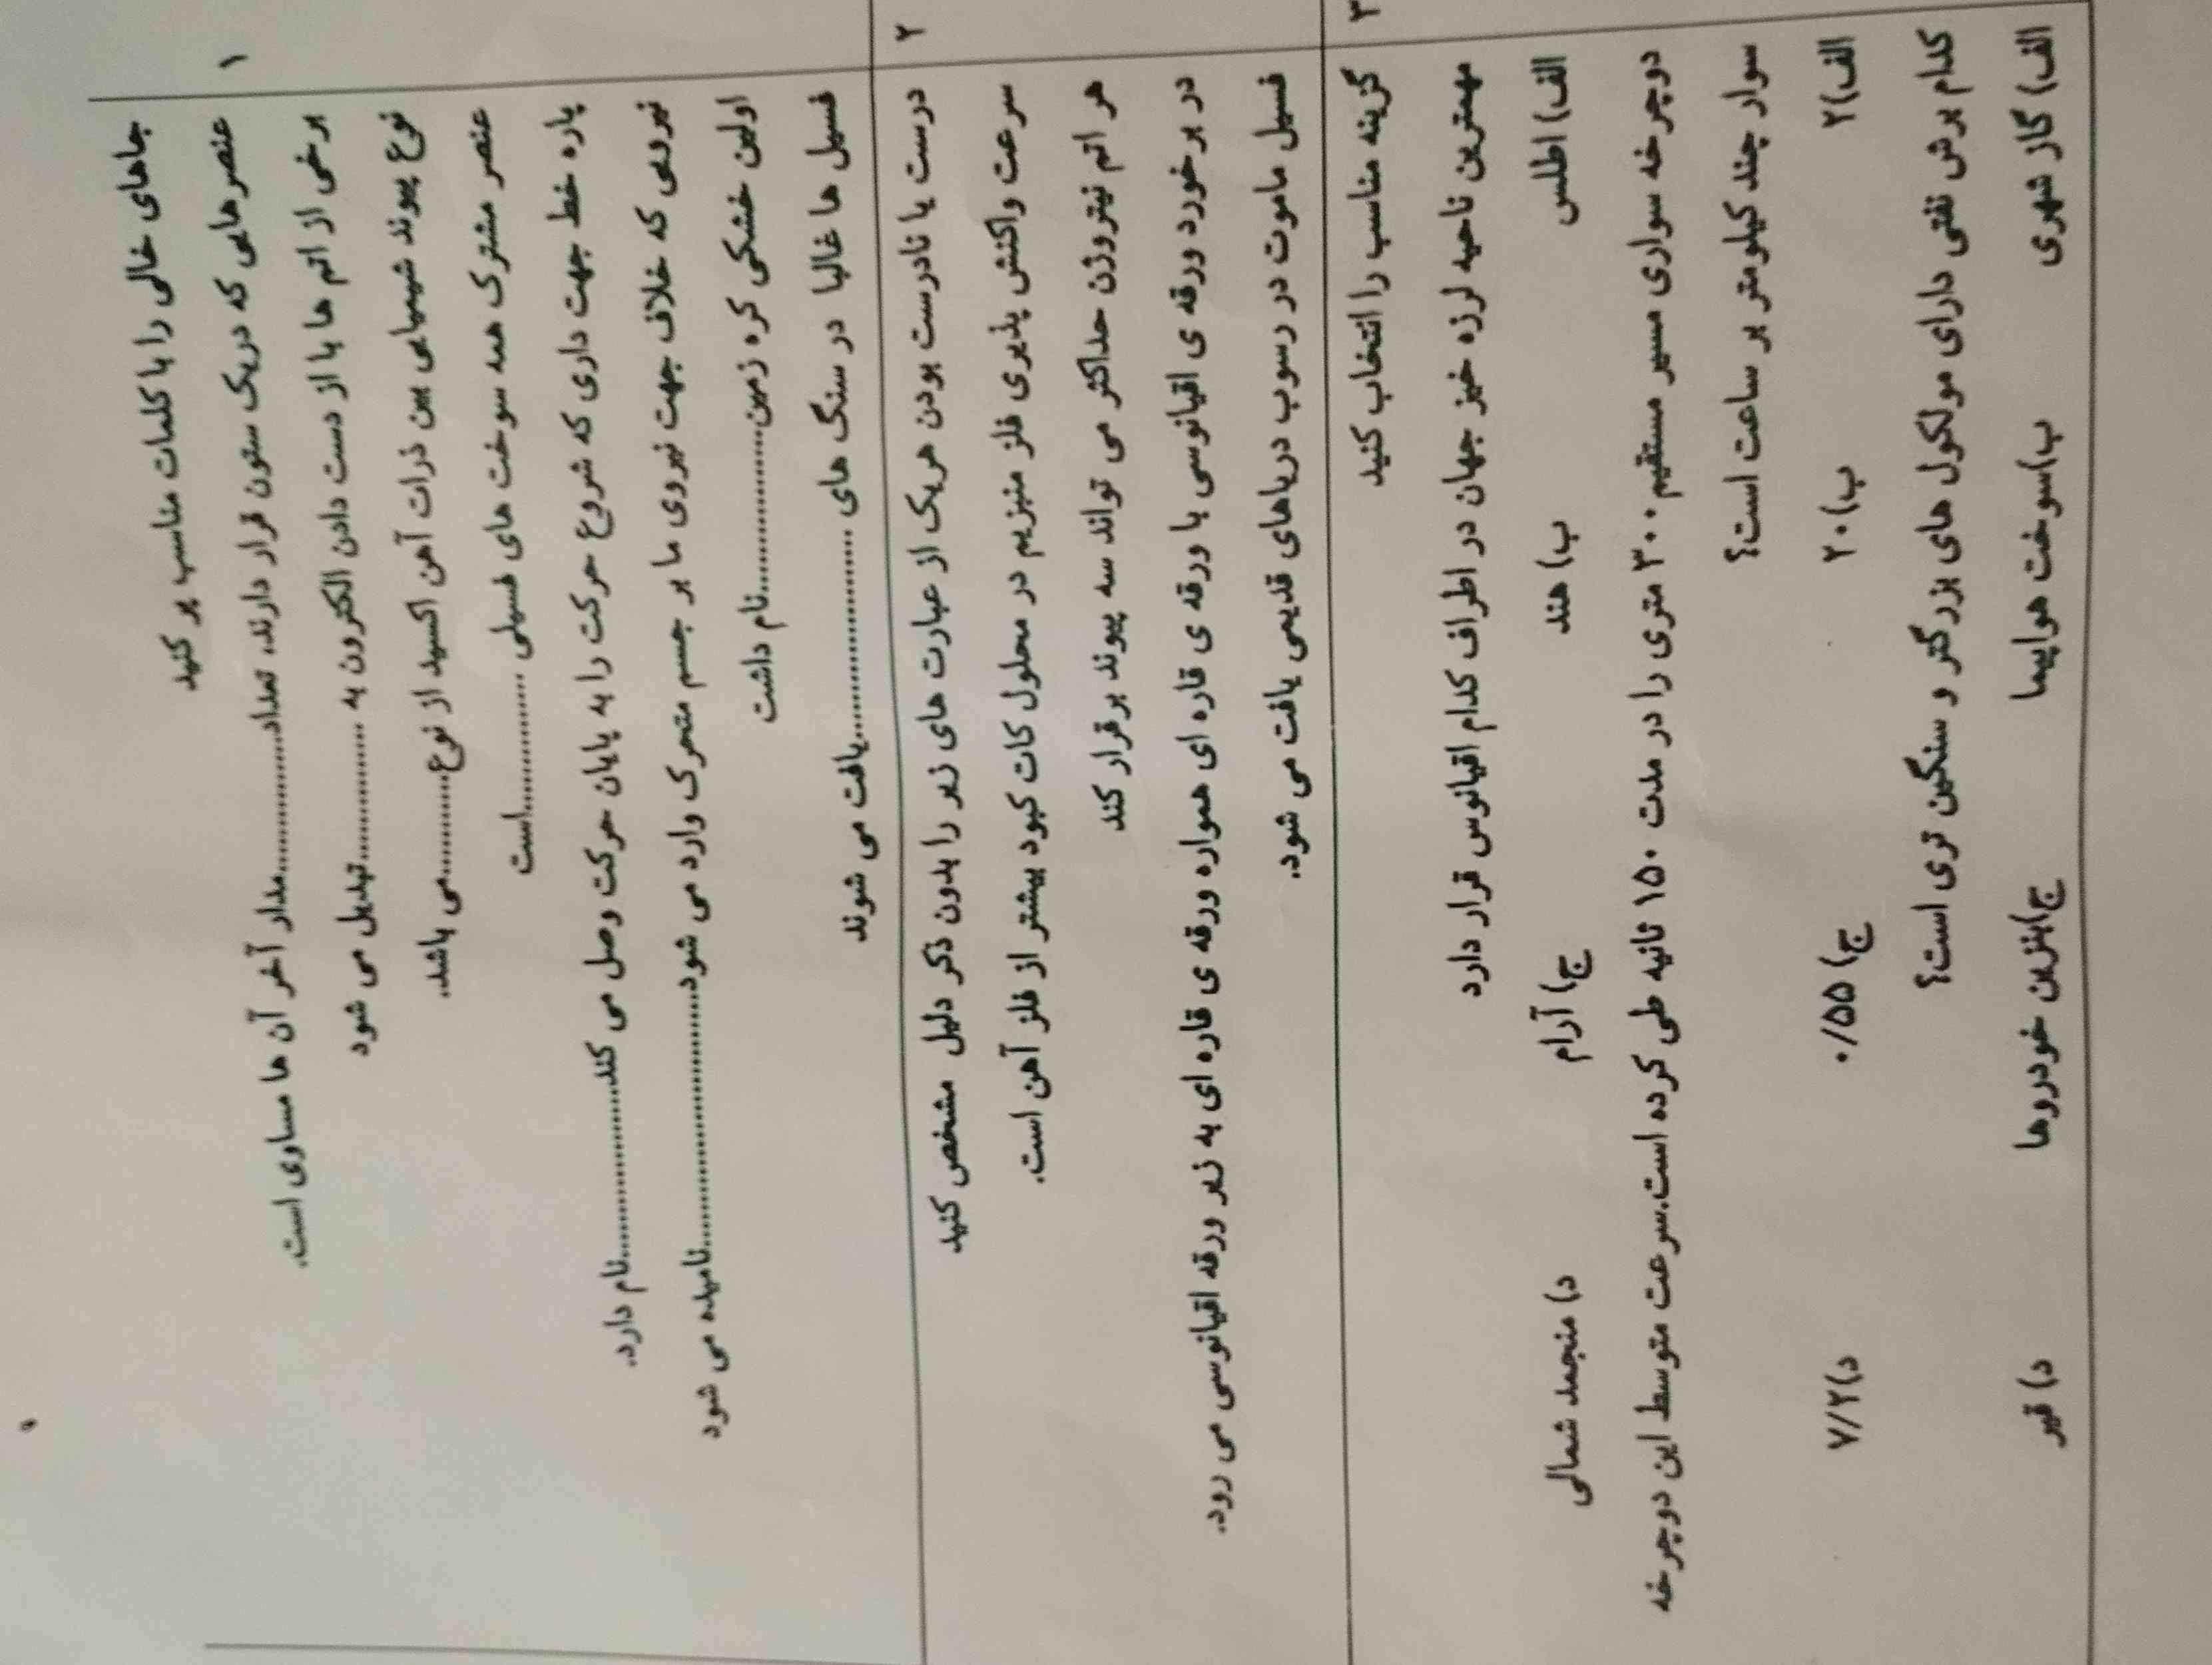 ۱
جاهای خالی را با کلمات مناسب پر کنید
عنصرهایی که دریک ستون قرار دارند، تعداد..................مدار آخر آن ها مساوی است.
برخی از اتم ها با از دست دادن الکترون به ..................تبدیل می شود
نوع پیوند شیمیایی بین ذرات آهن اکسید از نوع............می باشد.
عنصر مشترک همه سوخت های فسیلی ..................است
پاره خط جهت داری که شروع حرکت را به پایان حرکت وصل می کند......................نام دارد.
نیرویی که خلاف جهت نیروی ما بر جسم متحرک وارد می شود..............................نامیده می شود
اولین خشکی کره زمین....................نام داشت
فسیل ها غالبا در سنگ های ........................یافت می شوند
۲
درست یا نادرست بودن هریک از عبارت های زیر را بدون ذکر دلیل مشخص کنید
سرعت واکنش پذیری فلز منیزیم در محلول کات کبود بیشتر از فلز آهن است.
هر اتم نیتروژن حداکثر می تواند سه پیوند برقرار کند
در برخورد ورقه ی اقیانوسی با ورقه ی قاره ای همواره ورقه ی قاره ای به زیر ورقه اقیانوسی می رود.
فسیل ماموت در رسوب دریاهای قدیمی یافت می شود.
۳
گزینه مناسب را انتخاب کنید
مهمترین ناحیه لرزه خیز جهان در اطراف کدام اقیانوس قرار دارد
الف) اطلس ب) هند ج) آرام د) منجمد شمالی
دوچرخه سواری مسیر مستقیم ۳۰۰ متری را در مدت ۱۵۰ ثانیه طی کرده است.سرعت متوسط این دوچرخه
سوار چند کیلومتر بر ساعت است؟
الف)۲ ب)۲۰ ج) ۰/۵۵ د)۷/۲
کدام برش نفتی دارای مولکول های بزرگتر و سنگین تری است؟
الف) گاز شهری ب)سوخت هواپیما ج)بنزین خودروها د) قیر